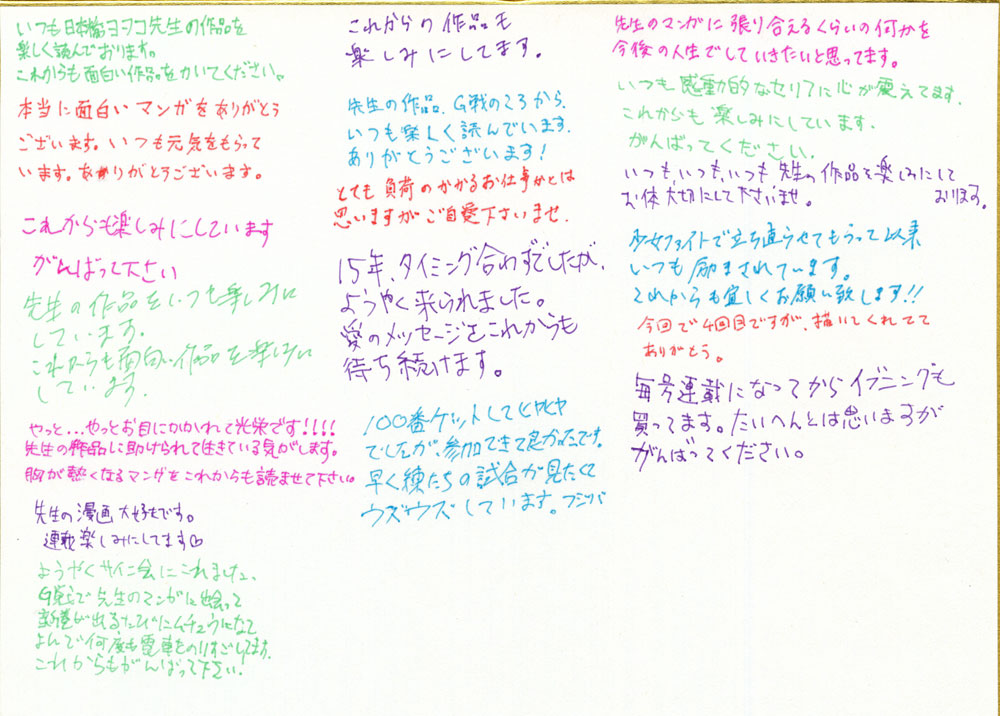 いつも日本橋ヨヲコ先生の作品を
楽しく読んでおります。
これからも面白い作品をかいてください。
本当に面白いマンガをありがとう
ございます。いつも元気をもらって
います。ありがとうございます。
これからも楽しみにしています
がんばって下さい
先生の作品をいつも楽しみに
しています.
これからも面白い作品を楽しみに
しています.
やっと...やっとお目にかかれて光栄です!!!!
先生の作品に助けられて生きている気がします。
胸が熱くなるマンガをこれからも読ませて下さい。
先生の漫画大好きです。
連載楽しみにしてます♡
ようやくサイン会にこれました、
G戦で先生のマンガに出会って
新巻が出るたびにムチュウになって
よんで何度も電車をのりすごしてます.
これからもがんばって下さい.
これからの作品も
楽しみにしてます。
先生の作品、G戦のころから、
いつも楽しく読んでいます.
ありがとうございます!
とても負荷のかかるお仕事かとは
思いますがご自愛下さいませ.
15年、タイミング合わずでしたが、
ようやく来られました。
愛のメッセージをこれからも
待ち続けます。
100番ゲットしてヒヤヒヤ
でしたが、参加できて良かったです.
早く練たちの試合が見たくて
ウズウズしています。
先生のマンガに張り合えるくらいの何かを
今後の人生でしていきたいと思ってます。
いつも感動的なセリフに心が震えてます.
これからも楽しみにしています.
がんばってください.
いつも、いつも、いつも先生の作品を楽しみにして
おります。
お体大切にして下さいませ。
少女ファイトで立ち直らせてもらって以来
いつも励まされています。
これからも宜しくお願い致します!!
今回で4回目ですが、描いてくれてて
ありがとう。
毎号連載になってからイブニングも
買ってます。たいへんとは思いますが
がんばってください。